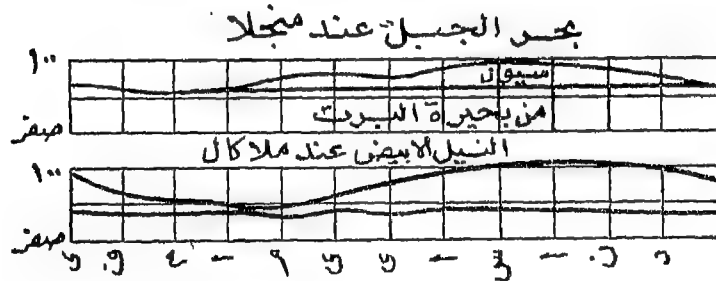 بحر الجبل عند منجلا
١٠٠
سيول
من بحيرة البرت
صفر
النيل الابيض عند ملاكال
١٠٠
صفر
ى ف م أ م ى ى أ س أ ن د